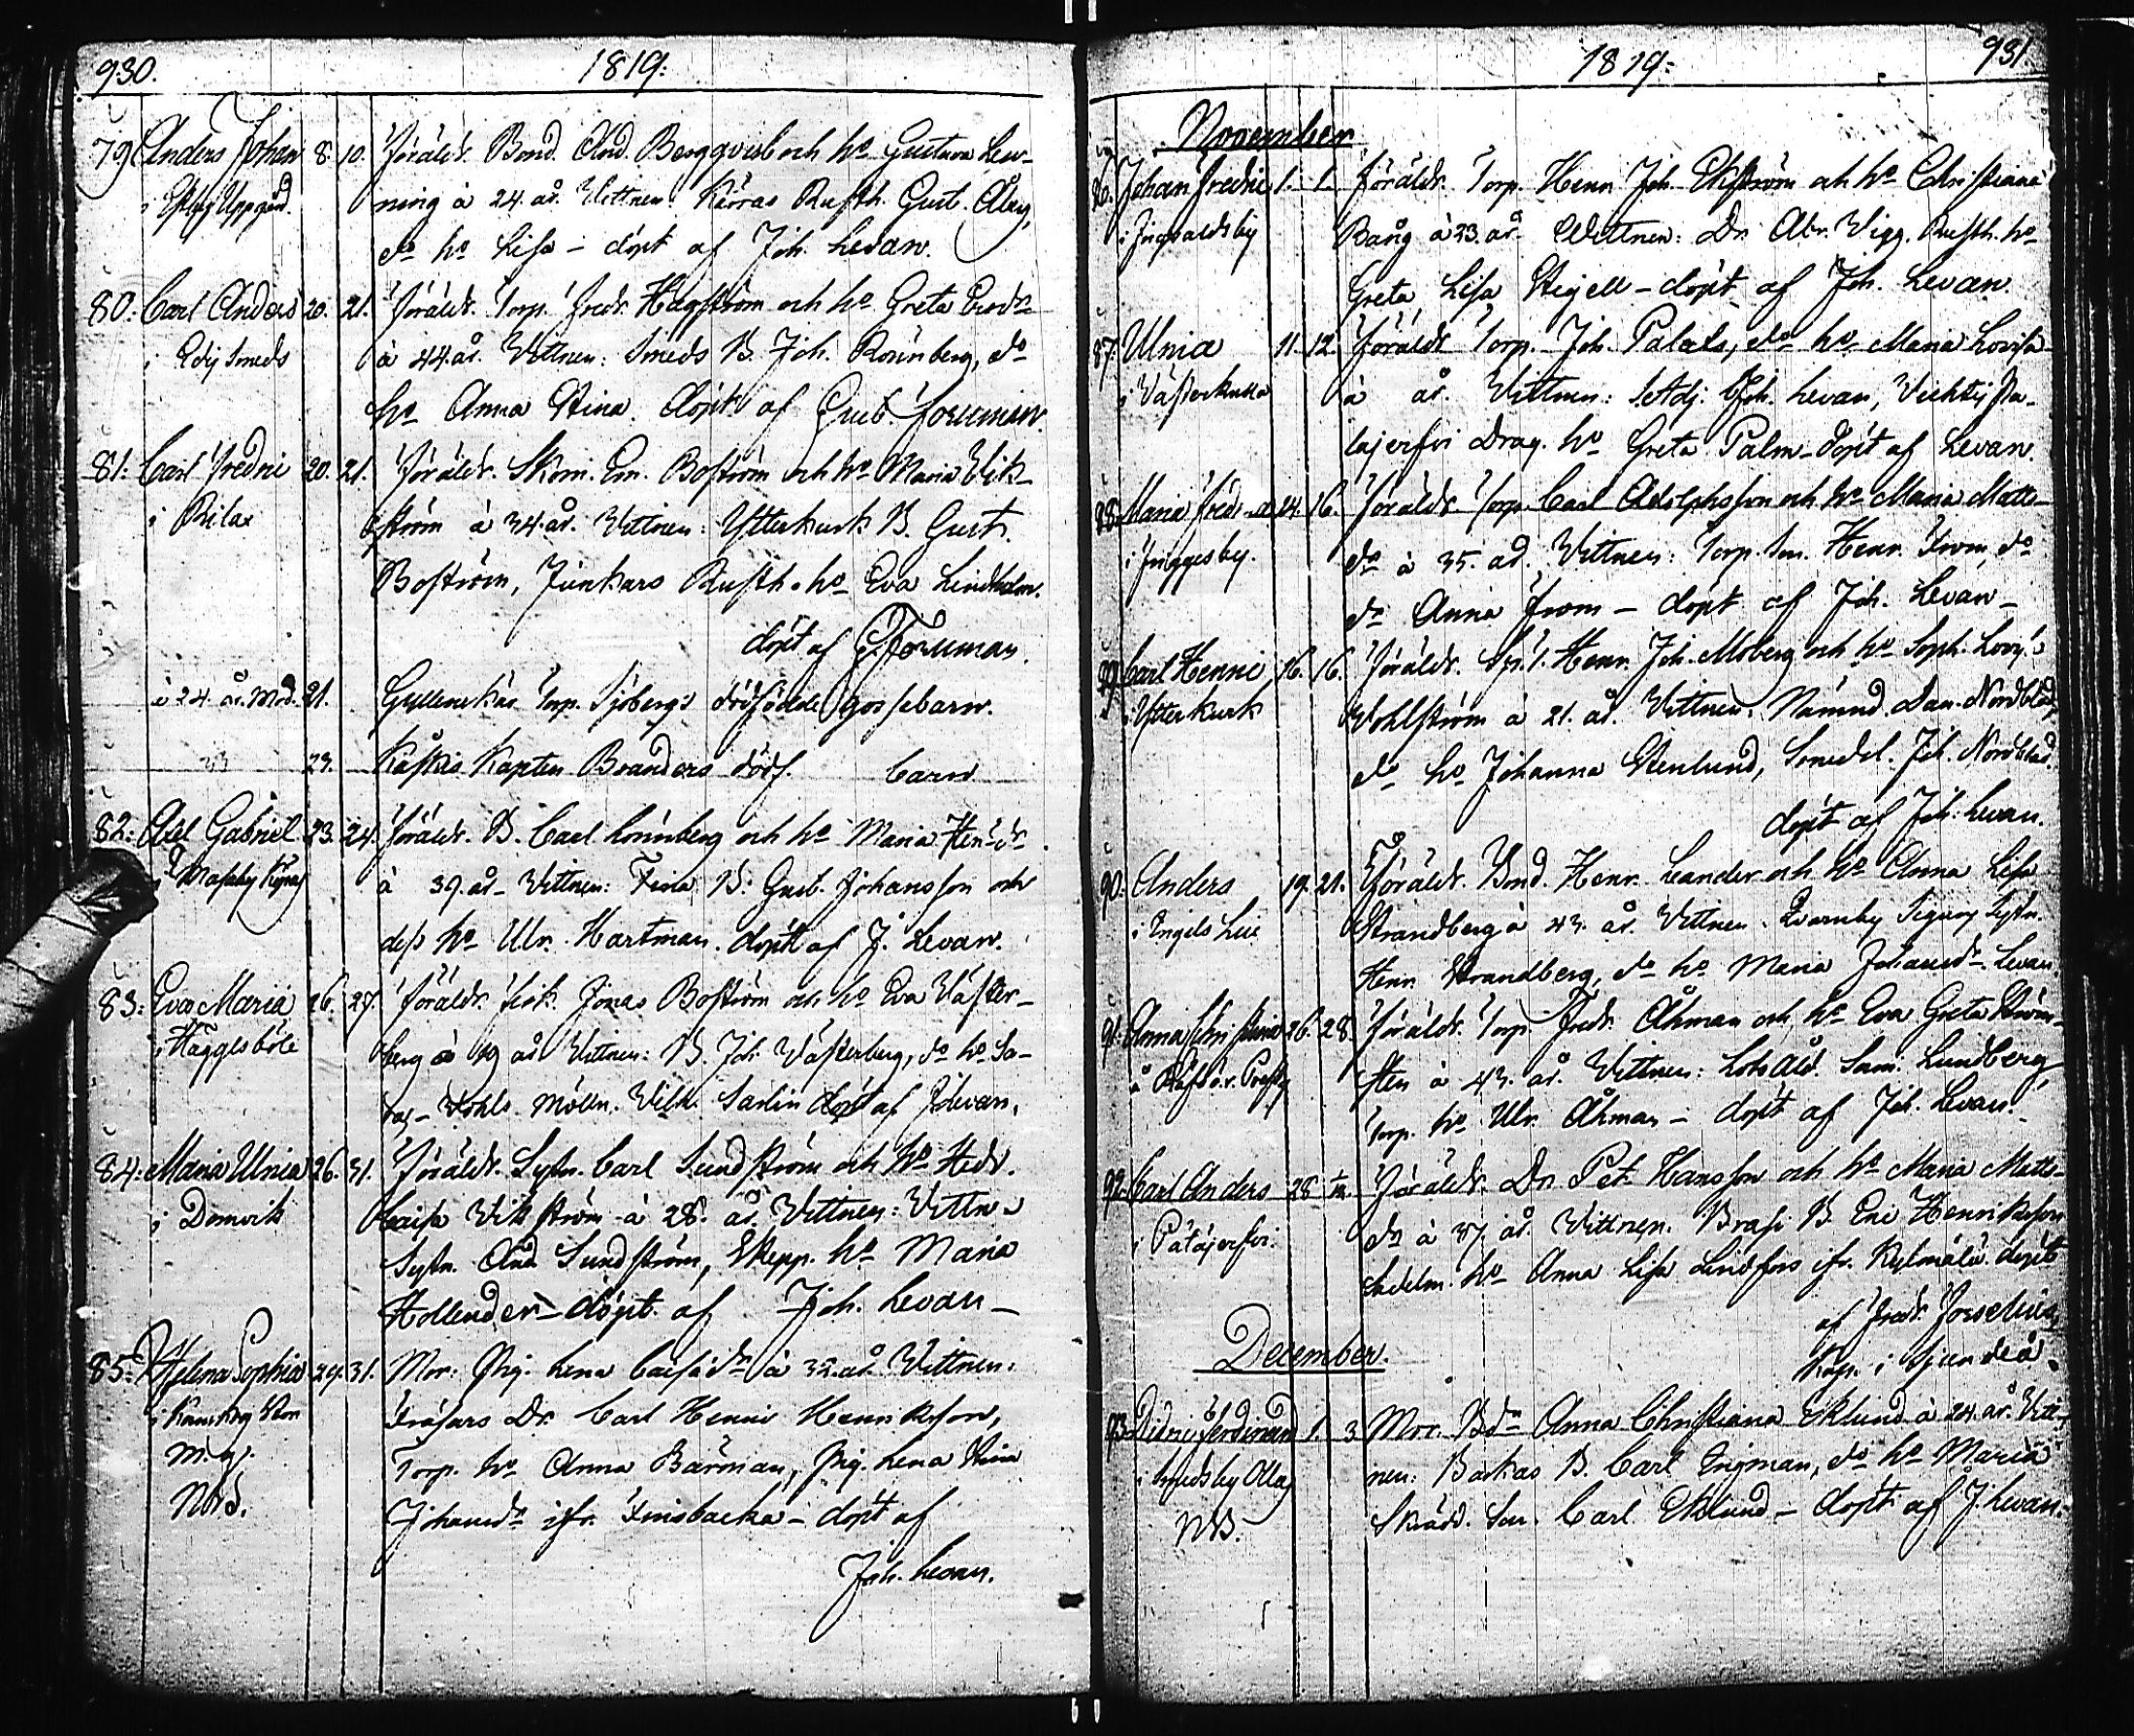 930. 1819:
79. Anders Johan 8. 10. Föräldr. Bond. And. Bergqvist och h:o Gustava Lew-
i Uppgård ning à 24. år. Vittnen: Kärras Rusth. Gust. Åberg,
d:o h:o Lisa – döpt af Joh. Levan.
80: Carl Anders 20. 21. Föräldr. Torp. Fredr. Hagström och h:o Greta
i Smeds à 44. år. Vittnen: Smeds B. Joh. Rönnberg, d:o
h:o Anna Stina. döpt af Gust. Forsman.
81: Carl Fredric 20. 21. Föräldr. Skom. Em. Boström och h:o Maria Wik-
i Rilax ström à 34. år. Vittnen: Ytterkurk B. Gust.
Boström, Junkars Rusth. h:o Eva Lindholm.
döpt af G. Forsman.
à 24 år. Mod. 21. Torp. Sjöbergs dödfödde gossebarn.
29. Kapten Branders dödf. barn
82: Axel Gabriel 23. 24. Föräldr. B. Carl Lönnberg och h:o Maria
à 39. år – Vittnen: B. Gust. Johansson och
dess h:o Ulr. Hartman. döpt af J. Levan.
83: Eva Maria 26. 27. Föräldr. Fisk. Jonas Boström och h:o Eva Väster-
i Häggesböle berg à 19 år. Vittnen: B. Joh. Västerberg, d:o h:o Sa-
ra, – Mölln. Wilh. Sarlin döpt af J. Levan.
84: Maria Ulrica 26. 31. Föräldr. Sytn. Carl Sundström och h:o Hedv.
i Domvik Caisa Vikström à 28. år. Vittnen:
Sytn. And. Sundström, Skepp. h:o Maria
Hollender – döpt af Joh. Levan –
85: Helena Sophia 29. 31. Mor: Pig. Lena Caisa à 32. år. Vittnen:
Dr. Carl Henric Henriksson,
Torp. h:o Anna Bärman, Pig. Lena Stina
Johansd:r ifr. Finsbacka – döpt af
Joh. Levan.
1819: 931
November
86. Johan Fredric 1. 1. Föräldr. Torp. Henr. Joh. Ekström och h:o Christiana
i Ingvaldsby Bång à 23. år. Vittnen: Dr. Abr. Vigg. Rusth. h:o
Greta Lisa Stigell – döpt af Joh. Levan.
87. Ulrica 11. 12. Föräldr. Torp. Joh. Palats, h:o Maria Lovisa
i Västerkulla à år. Vittnen: Adj. Joh. Levan,
Drag. h:o Greta Palm – döpt af Levan.
88. Maria Fredr–a 14. 16. Föräldr. Torp. Carl Adolphsson och h:o Maria Matts-
d:r à 35. år. Vittnen: Torp. Son. Henr. From, d:o
d:r Anna From – döpt af Joh. Levan –
89. Carl Henric 16. 16. Föräldr. Henr. Joh. Moberg och h:o Soph. Lovis.
i Ytterkurk Wohlström à 21. år. Vittnen: Nämnd. Dan. Nordblad,
d:o h:o Johanna Stenlund, Joh. Nordblad.
döpt af Joh. Levan.
90: Anders 19. 21. Föräldr. Bond. Henr. Lander och h:o Anna Lisa
i Engels Strandberg à 43. år. Vittnen: Sytn.
Henr. Strandberg, d:o h:o Maria Johansd:r Levan.
91: Anna Christina 26. 28. Föräldr. Torp. Fredr. Åhman och h:o Eva Greta Ström-
sten à 43. år. Vittnen: Lotsåld. Sam. Lundberg,
Torp. h:o Ulr. Åhman – döpt af Joh. Levan.
92. Carl Anders 28 1/12. Föräldr. Dr. Pet. Hansson och h:o Maria Matts-
i d:r à 37. år. Vittnen. B. Eric Henriksson
h:o Anna Lisa Lindfors ifr. döpt
af Fredr. Forselius,
Kapl. i Sjundeå.
December.
93. Didric Ferdinand 1. 3 Mor. Anna Christiana Eklund à 24. år. Vitt-
NB. nen: Backas B. Carl Engman, d:o h:o Maria
Skräd. Son. Carl Eklund – döpt af J. Levan.